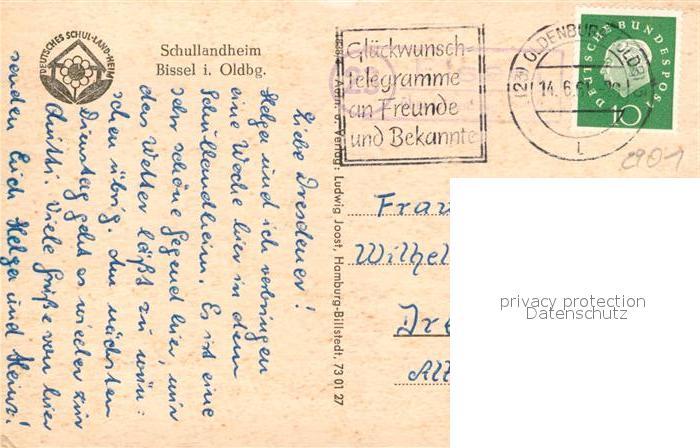 DEUTSCHES SCHUL-LAND-HEIM
Schullandheim
Bissel i. Oldbg.
Liebe Dresdener!
Helga und ich verbringen
eine Woche hier in dem
Schullandheim. Es ist eine
sehr schöne Gegend hier, nur
das Wetter läßt zu wün-
schen übrig. Am nächsten
Dienstag geht es wieder zur
Mutti. Viele Grüße von hier
senden Euch Helga und Heinz!
Verlag: Ludwig Joost, Hamburg-Billstedt. 73 01 27
Glückwunsch-
telegramme
an Freunde
und Bekannte
(23) OLDENBURG (OLDB)
14.6.61
DEUTSCHE BUNDESPOST
10
2901
Frau
Wilhel
Dre
Alt
privacy protection
Datenschutz